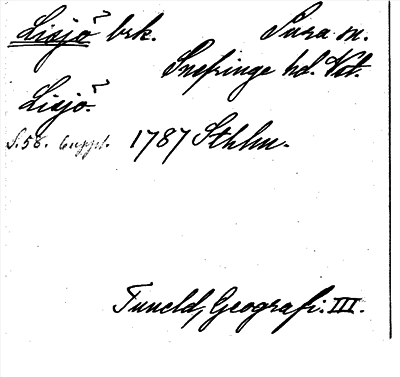 Lisjö brk. Sura sn.
Snefringe hd. Vst.
Lisjö.
S. 58. Suppl. 1787 Sthlm.
Tuneld, Geografi. III.